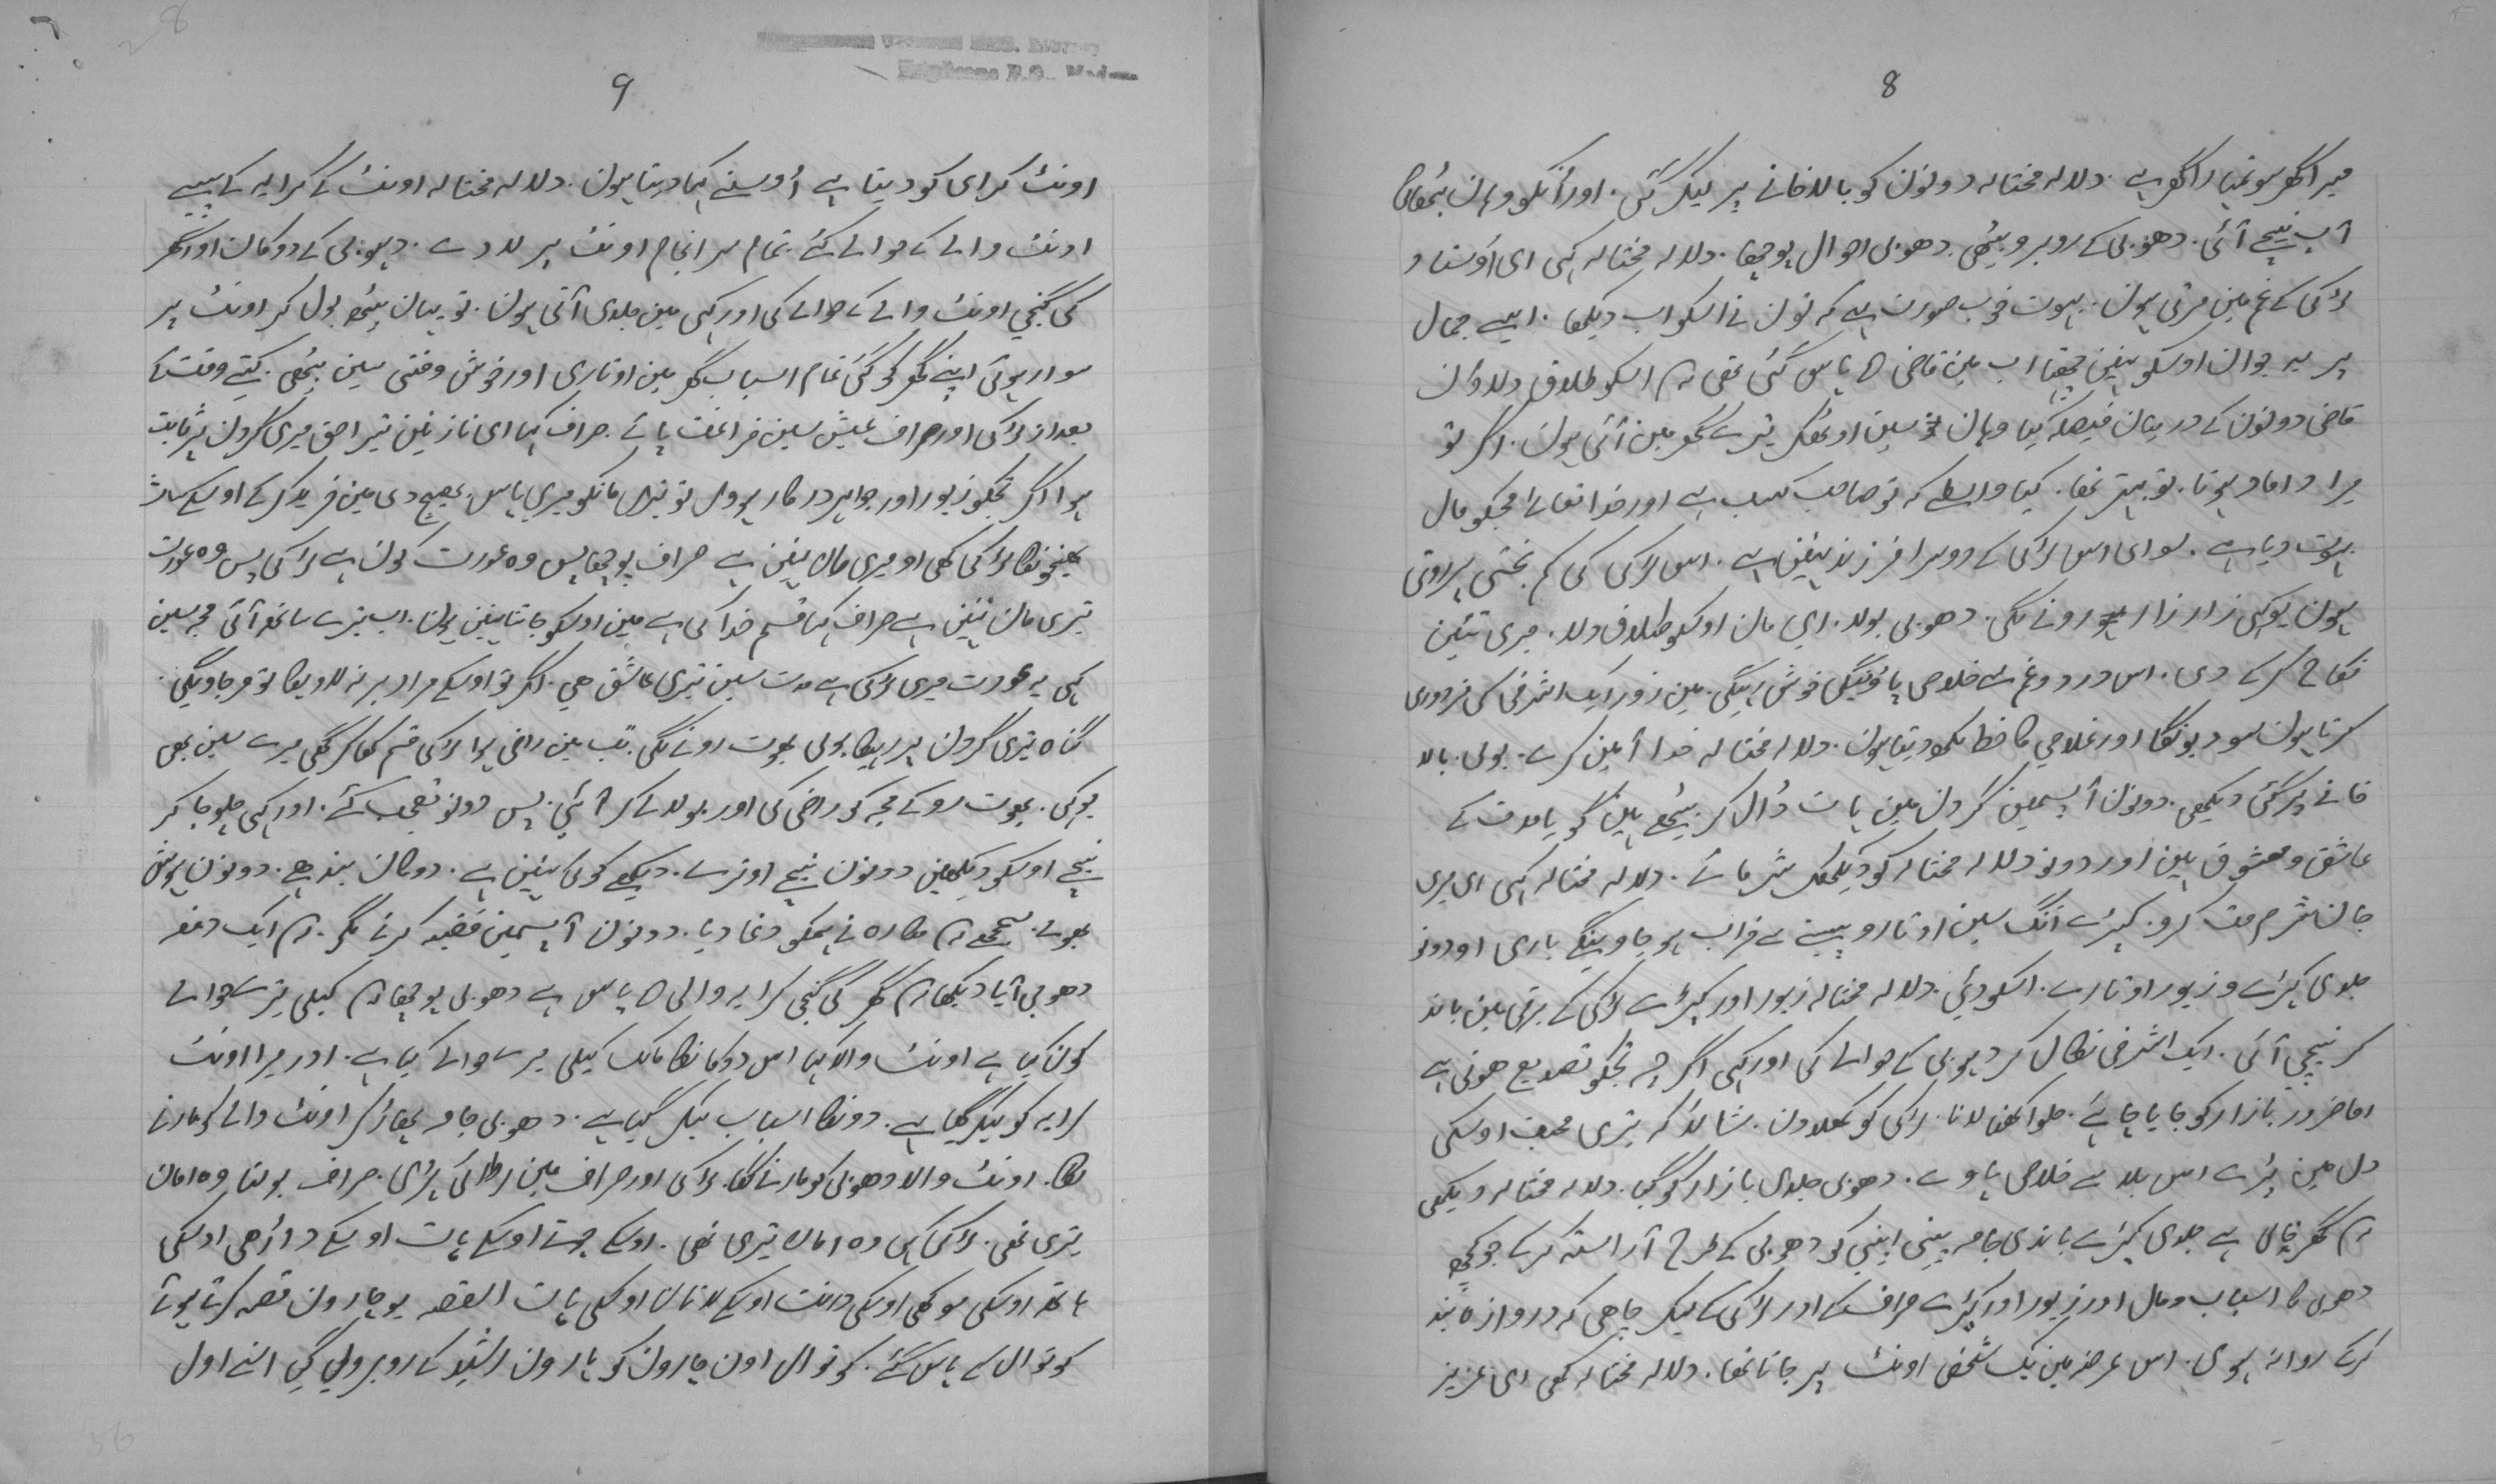 8
میرا گھر سو تمہارا گھر ہے۔ دلالہ محتالہ دونون کو بالاخانے پر لیکر گئی۔ اور انکو وہان بٹھائی
آپ نیچے آئی۔ دھوبی کے روبرو بیٹھی۔ دھوبی احوال پوچھا۔ دلالہ محتالہ کہی ای اُوستاد
لڑکی کے غم مین مرتی ہون۔ بہوت خوب صورت ہے کہ تون نے اسکو اب دیکھا۔ ایسے جمال
پر یہ جوان اوسکو نہین چھتا اب مین قاضی پاس گئی تھی اسکو طلاق دلاؤن
قاضی دونون کے درمیان فیصلہ کیا وہان سین اوٹھکر تیرے گھر مین آئی ہون۔ اگر تو
مرا داماد ہوتا۔ تو بہتر تھا۔ کیا واسطے کہ تو صاحب کسب ہے اور خدا تعالیٰ مجکو مال
بہوت دیا ہے۔ سوای اس لڑکی کے دوسرا فرزند نہین ہے۔ اس لڑکی کی کم بختی پر روتی
ہون یو کہی زار زار رونے لگی۔ دھوبی بولا۔ ای مان اوسکو طلاق دلا۔ مری تئین
نکاح کرکے دی۔ اس درد و غم سے خلاصی پاؤنیگی خوش رہیگی۔ مین روز ایک اشرفی کی مزدوری
کرتا ہون سو دیونگا اور غلامی کا خط لکھدیتا ہون۔ دلالہ محتالہ خدا آمین کرے۔ بولی۔ بالا
خانے پر گئی دیکھی۔ دونون آپسمین گردن مین ہات ڈال کر بیٹھے ہین گویا مدت کے
عاشق و معشوق ہین اور دونو دلالہ محتالہ کو دیکھکر شرمائے۔ دلالہ محتالہ کہی ای مری
جان شرم مت کرو۔ کپڑے انگ سین اوتارو پسینے سے خراب ہو جاوینگے باری او دونو
جلدی کپڑے و زیور اوتارے۔ اسکو دئے۔ دلالہ محتالہ زیور اور کپڑے لڑکی کے برقی مین باند
کر نیچے آئی۔ ایک اشرفی نکال کر دھوبی کے حوالے کی اور کہی اگرچہ تجکو تصدیع ہوتی ہے
اما ضرور بازار کو جایا چاہئے۔ حلوا لانا۔ لڑکی کو کھلاون۔ شائد کہ تیری محبت اوسکی
دل مین پڑے اس بلا سے خلاصی پاوے۔ دھوبی جلدی بازار کو گیا۔ دلالہ محتالہ دیکھی
گھر خالی ہے جلدی کپڑے باندی جامہ پہنی اپنی کو دھوبی کے طرح آراستہ کرکے جو کچھ
دھوبی کا اسباب و مال اور زیور اور کپڑے صراف کے اور لڑکی کے لیکر چاہی کہ دروازہ بند
کرکے روانہ ہوی۔ اس عرصہ مین یک شخص اونٹ پر جاتا تھا۔ دلالہ محتالہ کہی ای عزیز
9
اونٹ کرای کو دیتا ہے اُوسنے کہا دیتا ہون۔ دلالہ محتالہ اونٹ کے کرایہ کے پیسے
اونٹ والے کے حوالے کئے۔ تمام سرانجام اونٹ پر لادے۔ دھوبی کے دوکان اور گھر
کی کنجی اونٹ والے کے حوالے کی اور کہی مین جلدی آتی ہون۔ تو یہان بیٹھ بول کر اونٹ پر
سوار ہوئی اپنے گھر کو گئی تمام اسباب گھر مین اوتاری اور خوش وقتی سین بیٹھی۔ کتے وقت کے
بعد از لڑکی اور صراف عیش سین فراغت پائے۔ صراف کہا ای نازنین تیرا حق میری گردن پر ثابت
ہوا اگر تجکو زیور اور جواہر درکار ہووی تو مانکو میری پاس بھیج دی مین خرید کر کے اوسکے سات
بھیجونگا لڑکی کہی او میری مان نہین ہے صراف پوچھا پس وہ عورت کون ہے لڑکی پس وہ عورت
تیری مان نہین ہے صراف کہا قسم خدا کی ہے مین اوسکو جانتا نہین ہون۔ اب تیرے ساتھ آئی مجہ سین
کہی یہ عورت میری لڑکی ہے مدت سین تیری عاشق ہی۔ اگر تو اوسکے مراد بر نہ لاویگا تو مر جاویگی۔
گناہ تیری گردن پر رہیگا بولی بہوت رونے لگی۔ تب مین راضی ہوا لڑکی قسم کھا کر کہی میرے سین بھی
یو کہی۔ بہوت رو کے مجہ کو راضی کی اور بولا کے کر آئی۔ پس دونو تعجب کئے۔ اور کہی چلو جا کر
نیچے اوسکو دیکھین دونون نیچے اوترے۔ دیکھے کوئی نہین ہے۔ دوکان بند ہے۔ دونون بیہوش
ہوے۔ سمجھے مکارہ نے ہمکو دغا دیا۔ دونون آپسمین قضیہ کرنے لگے۔ ایک دفعہ
دھوبی آیا دیکھا گھر کی کنجی کرایہ والی پاس ہے دھوبی پوچھا کیلی تیرے حوالے
کون کیا ہے اونٹ والا کہا اس دوکانکا مالک کیلی میرے حوالے کیا ہے۔ اور مرا اونٹ
کرایہ کو لیکر گیا ہے۔ دونکا اسباب لیکر گیا ہے۔ دھوبی جامہ پھاڑکر اونٹ والے کو مارنے
لگا۔ اونٹ والا دھوبی کو مارنے لگا۔ لڑکی اور صراف مین لڑائی پڑی۔ صراف بولتا وہ امان
تیری تھی۔ لڑکی کہی وہ امان تیری تھی۔ اوسکے اوسکے ہات اوسکے داڑھی اوسکی
ہاتھ اوسکی اوسکی دانت اوسکے اوسکی ہات القصہ یو چارون قصہ کرتے ہوئے
کوتوال کے پاس گئے۔ کوتوال اون چارون کو ہارون الرشید کے روبرو لے گئے اسنے اول